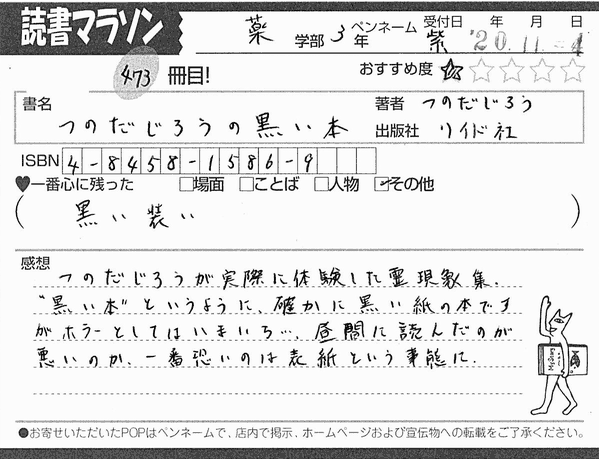 読書マラソン
薬 学部 3年 ペンネーム 紫 受付日 年 月 日 '20.11.-4
473 冊目! おすすめ度 ★☆☆☆☆
書名 つのだじろうの黒い本
著者 つのだじろう
出版社 リイド社
ISBN 4-8458-1586-9
♥一番心に残った □場面 □ことば □人物 ☑その他
( 黒い装い )
感想
つのだじろうが実際に体験した霊現象集.
"黒い本"というように、確かに黒い紙の本です
がホラーとしてはいまいち…. 昼間に読んだのが
悪いのか、一番恐いのは表紙という事態に.
●お寄せいただいたPOPはペンネームで、店内で掲示、ホームページおよび宣伝物への転載をご了承ください。